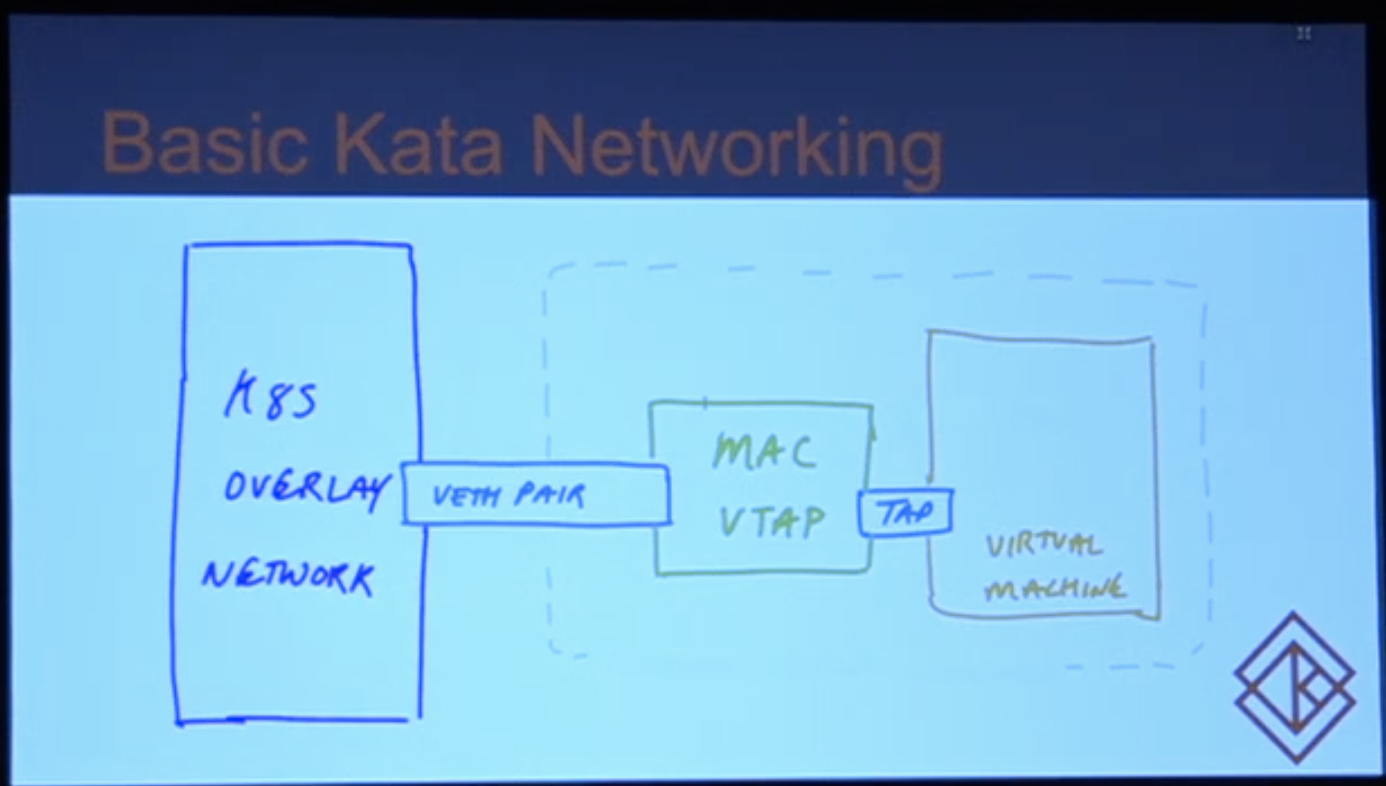 Basic Kata Networking
K8S
OVERLAY
NETWORK
VETH PAIR
MAC
VTAP
TAP
VIRTUAL
MACHINE